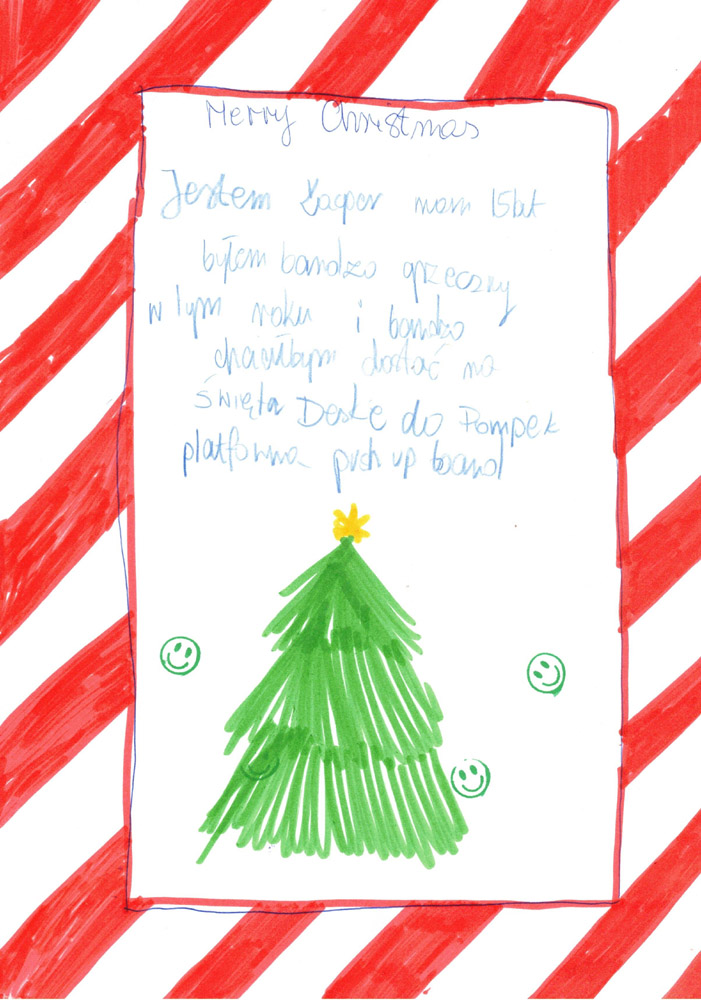 Merry Christmas
Jestem Kacper mam 15 lat
byłem bardzo grzeczny
w tym roku i bardzo
chciałbym dostać na
święta Deskę do Pompek
platforma push up board